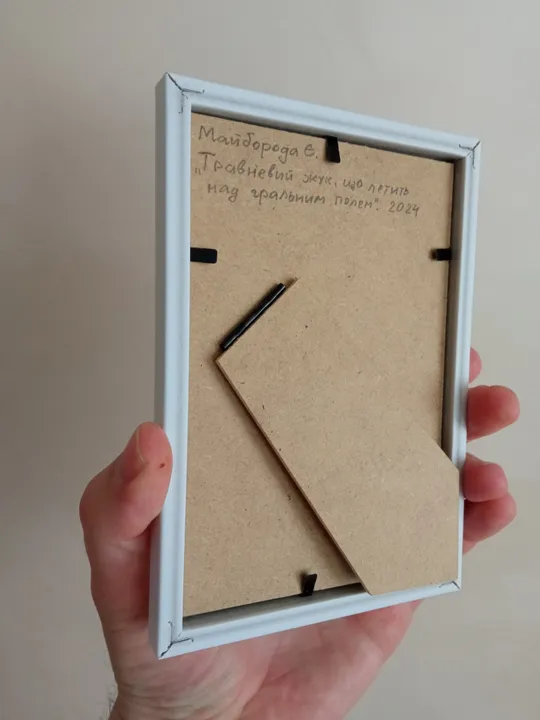 Майборода Є.
„Травневий жук, що летить
над гральним полем". 2024